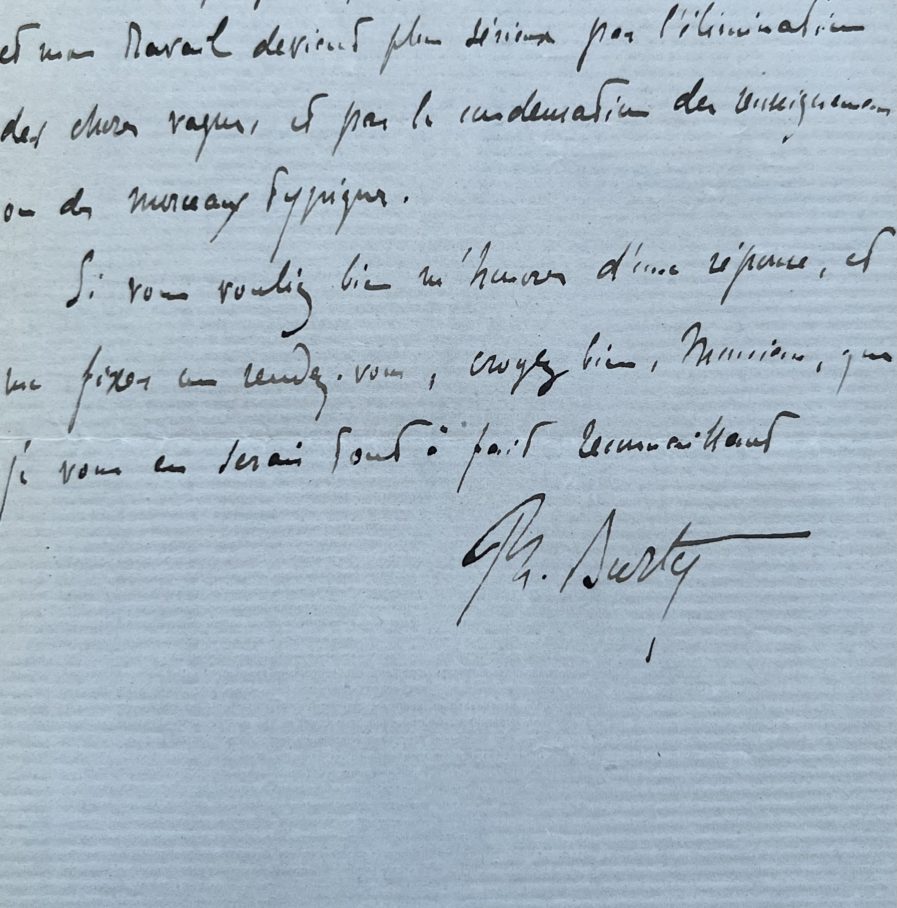 et mon travail devient plus sérieux par l'élimination
des choses vagues, et par la condensation des renseignemens
ou des morceaux typiques.
Si vous vouliez bien m'honorer d'une réponse, et
me fixer un rendez-vous, croyez bien, Monsieur, que
je vous en serais tout à fait reconnaissant
Ph. Burty